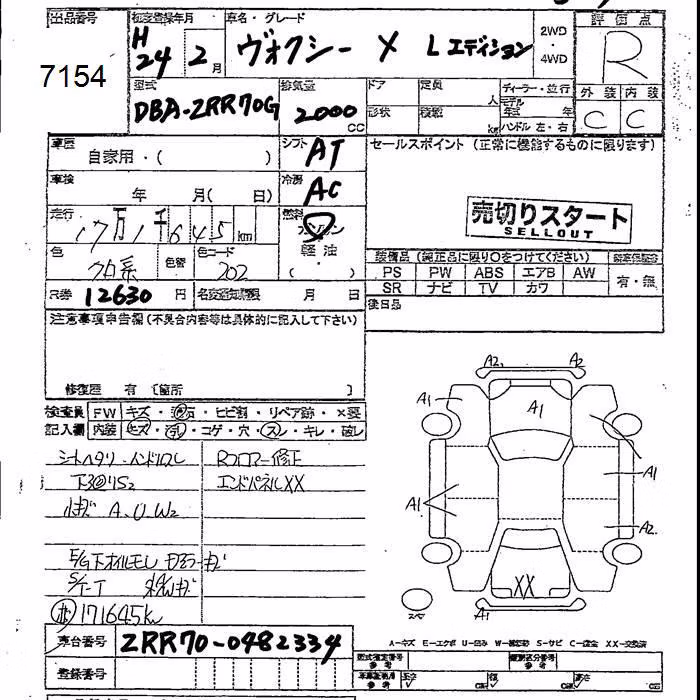 出品番号
7154
初度登録年月
H 24 2月
車名・グレード
ヴォクシー X Lエディション
2WD
・
4WD
評価点
R
外装 内装
C C
型式
DBA-ZRR70G
排気量
2000 CC
ドア
形状
定員
人
積載
kg
ディーラー・並行
モデル
年式 年
ハンドル 左・右
車歴
自家用・( )
シフト
AT
車検
年 月( 日)
冷房
AC
走行
17万1千645km
燃料
ガソリン
・
軽油
( )
色
クロ系
色替
色コード
202
R券 12630 円
名変通知期限 月 日
セールスポイント (正常に機能するものに限ります)
売切りスタート
SELLOUT
装備品 (純正品に限り○をつけてください)
PS PW ABS エアB AW
SR ナビ TV カワ
有・無
後日品
注意事項申告欄(不具合内容等は具体的に記入して下さい)
修復歴 有 [箇所 ]
検査員 FW キズ・飛石・ヒビ割・リペア跡・×要
記入欄 内装 ヒズ・汚レ・コゲ・穴・スレ・キレ・破レ
シートヘタリ・ハンドルスレ
Rフロアー修正
エンドパネルXX
A.U.W2
E/G下オイルモレ
S/T-T
171645km
A2 A2
A1 A1
A1 A1
A2
XX
スペア A1
A-キズ E-エクボ U-凹み W-補修跡 S-サビ C-腐食 XX-交換済
車台番号 ZRR70-0482334
型式指定番号
参考
類別区分番号
参考
登録番号
車庫証明用
参考
長さ 幅 高さ